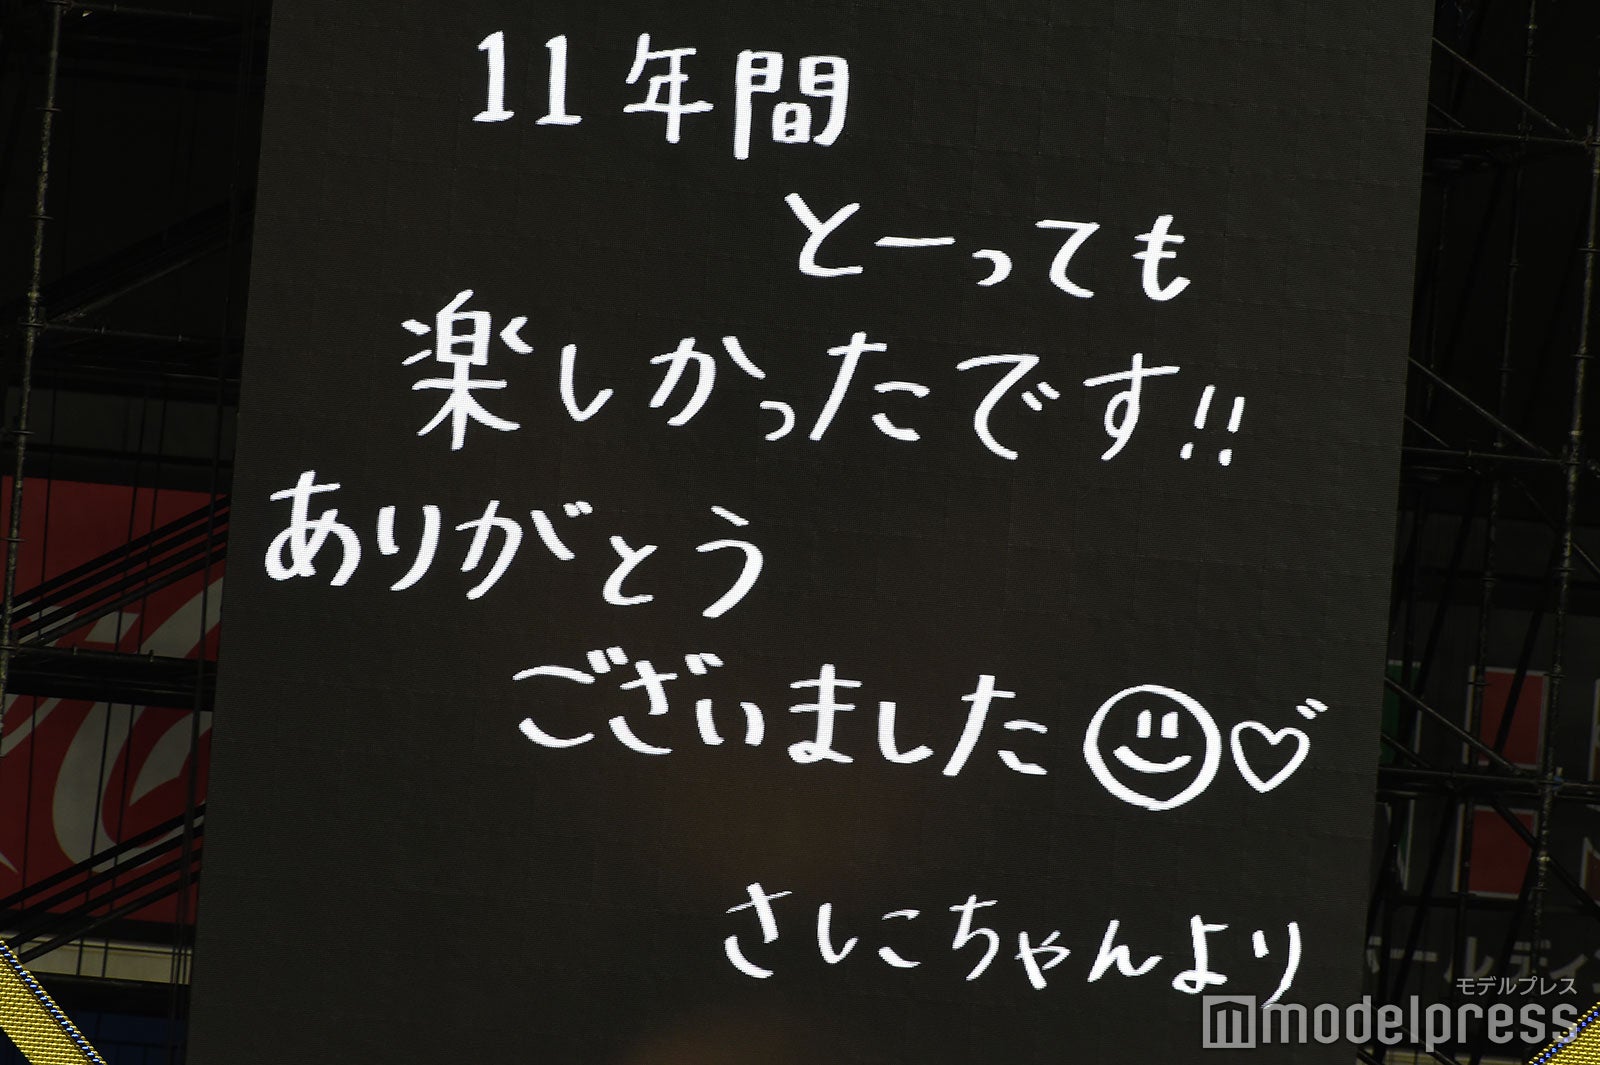 11年間
とーっても
楽しかったです!!
ありがとう
ございました
さしこちゃんより
モデルプレス
modelpress